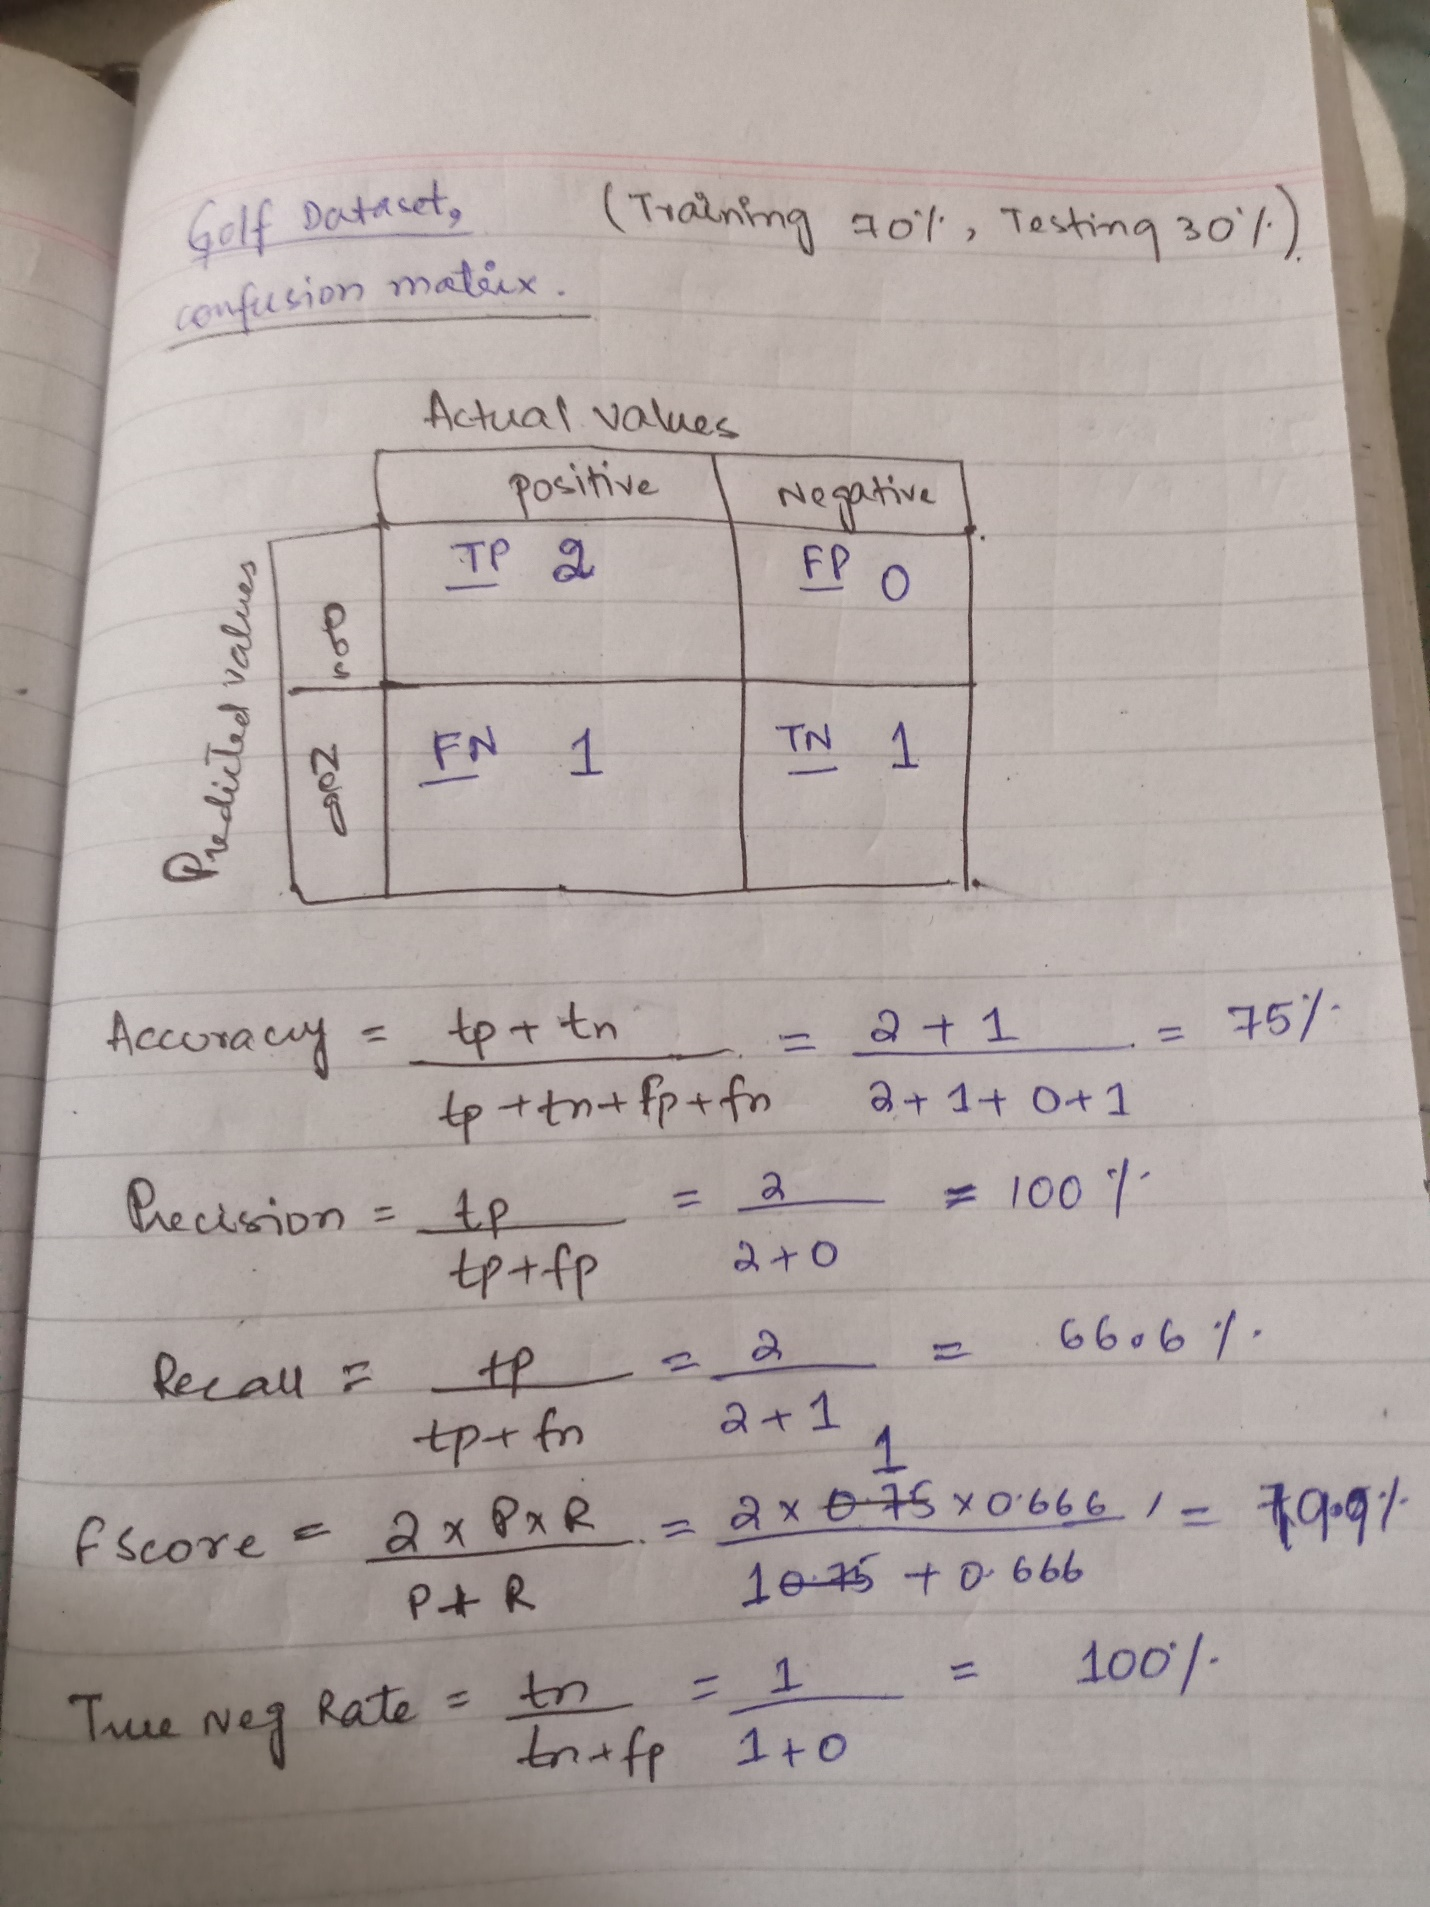 Golf Dataset, (Training 70%, Testing 30%).
confusion matrix.
Actual values
positive Negative
Predicted values
Pos
TP 2 FP 0
Neg
FN 1 TN 1
Accuracy = tp + tn / tp + tn + fp + fn = 2 + 1 / 2 + 1 + 0 + 1 = 75%
Precision = tp / tp + fp = 2 / 2 + 0 = 100%
Recall = tp / tp + fn = 2 / 2 + 1 = 66.6%
1
fscore = 2 x P x R / P + R = 2 x 0.75 x 0.666 / 1 0.75 + 0.666 = 79.9%
True Neg Rate = tn / tn + fp = 1 / 1 + 0 = 100%